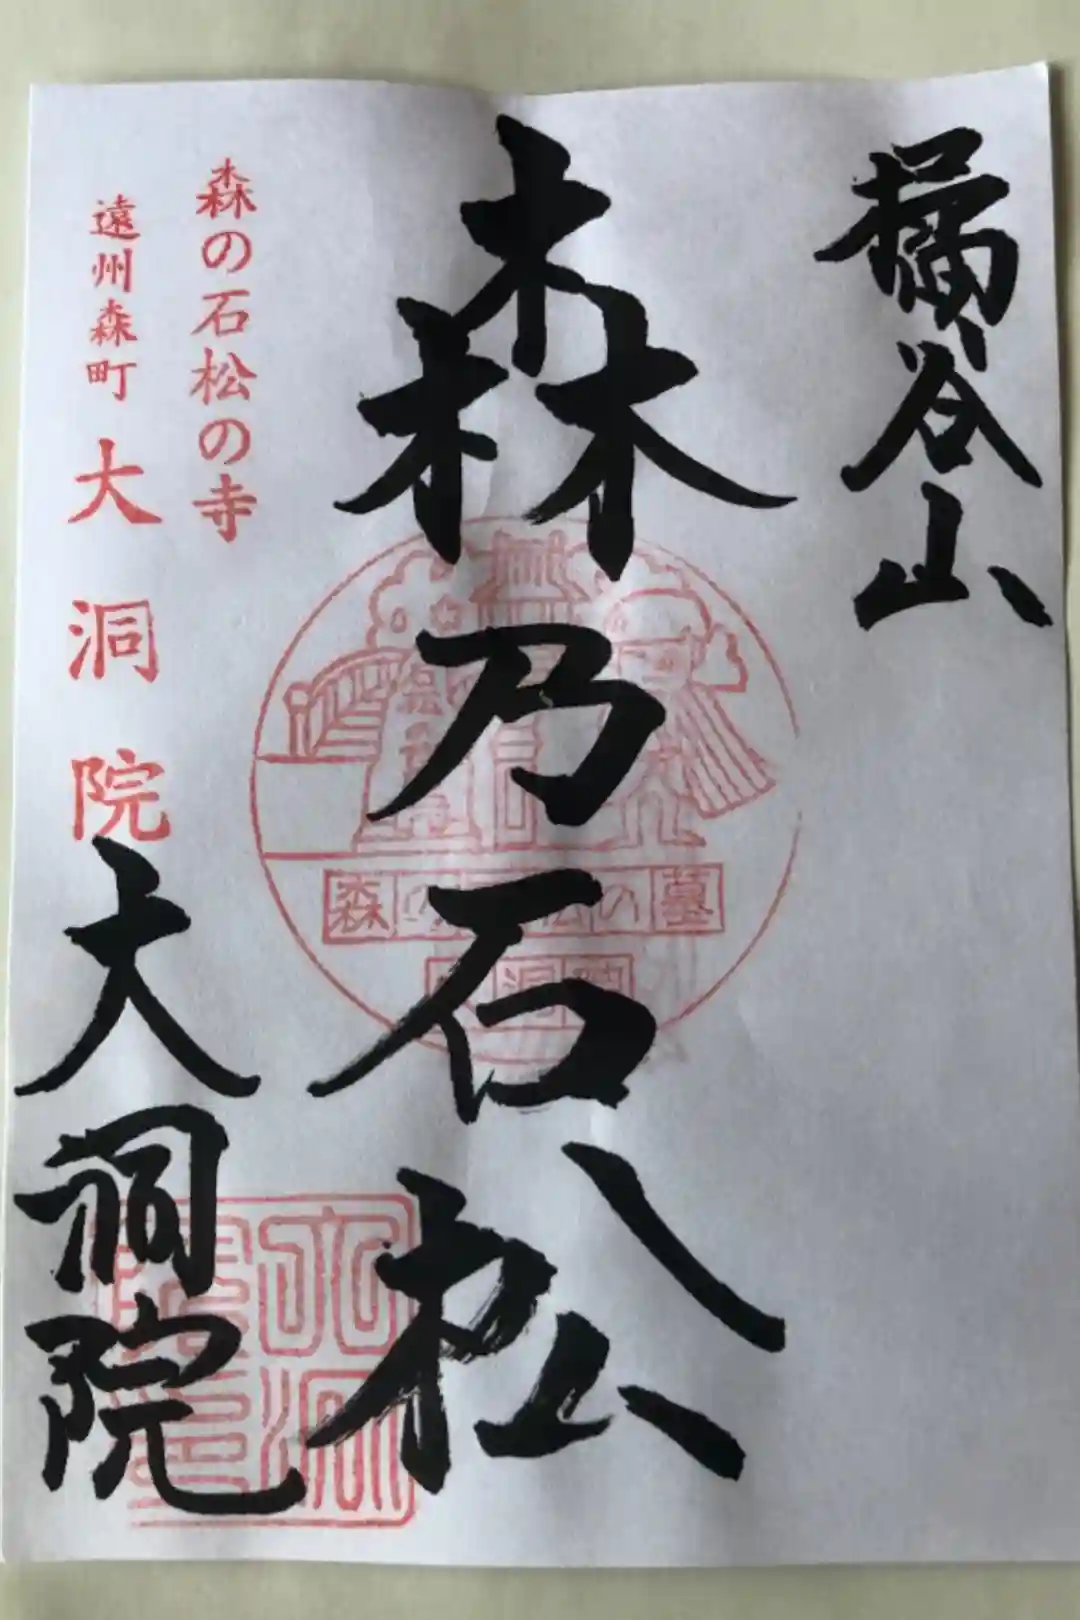 橘谷山
森乃石松
森の石松の寺
遠州森町 大洞院
大洞院
森の石松の墓
大洞院